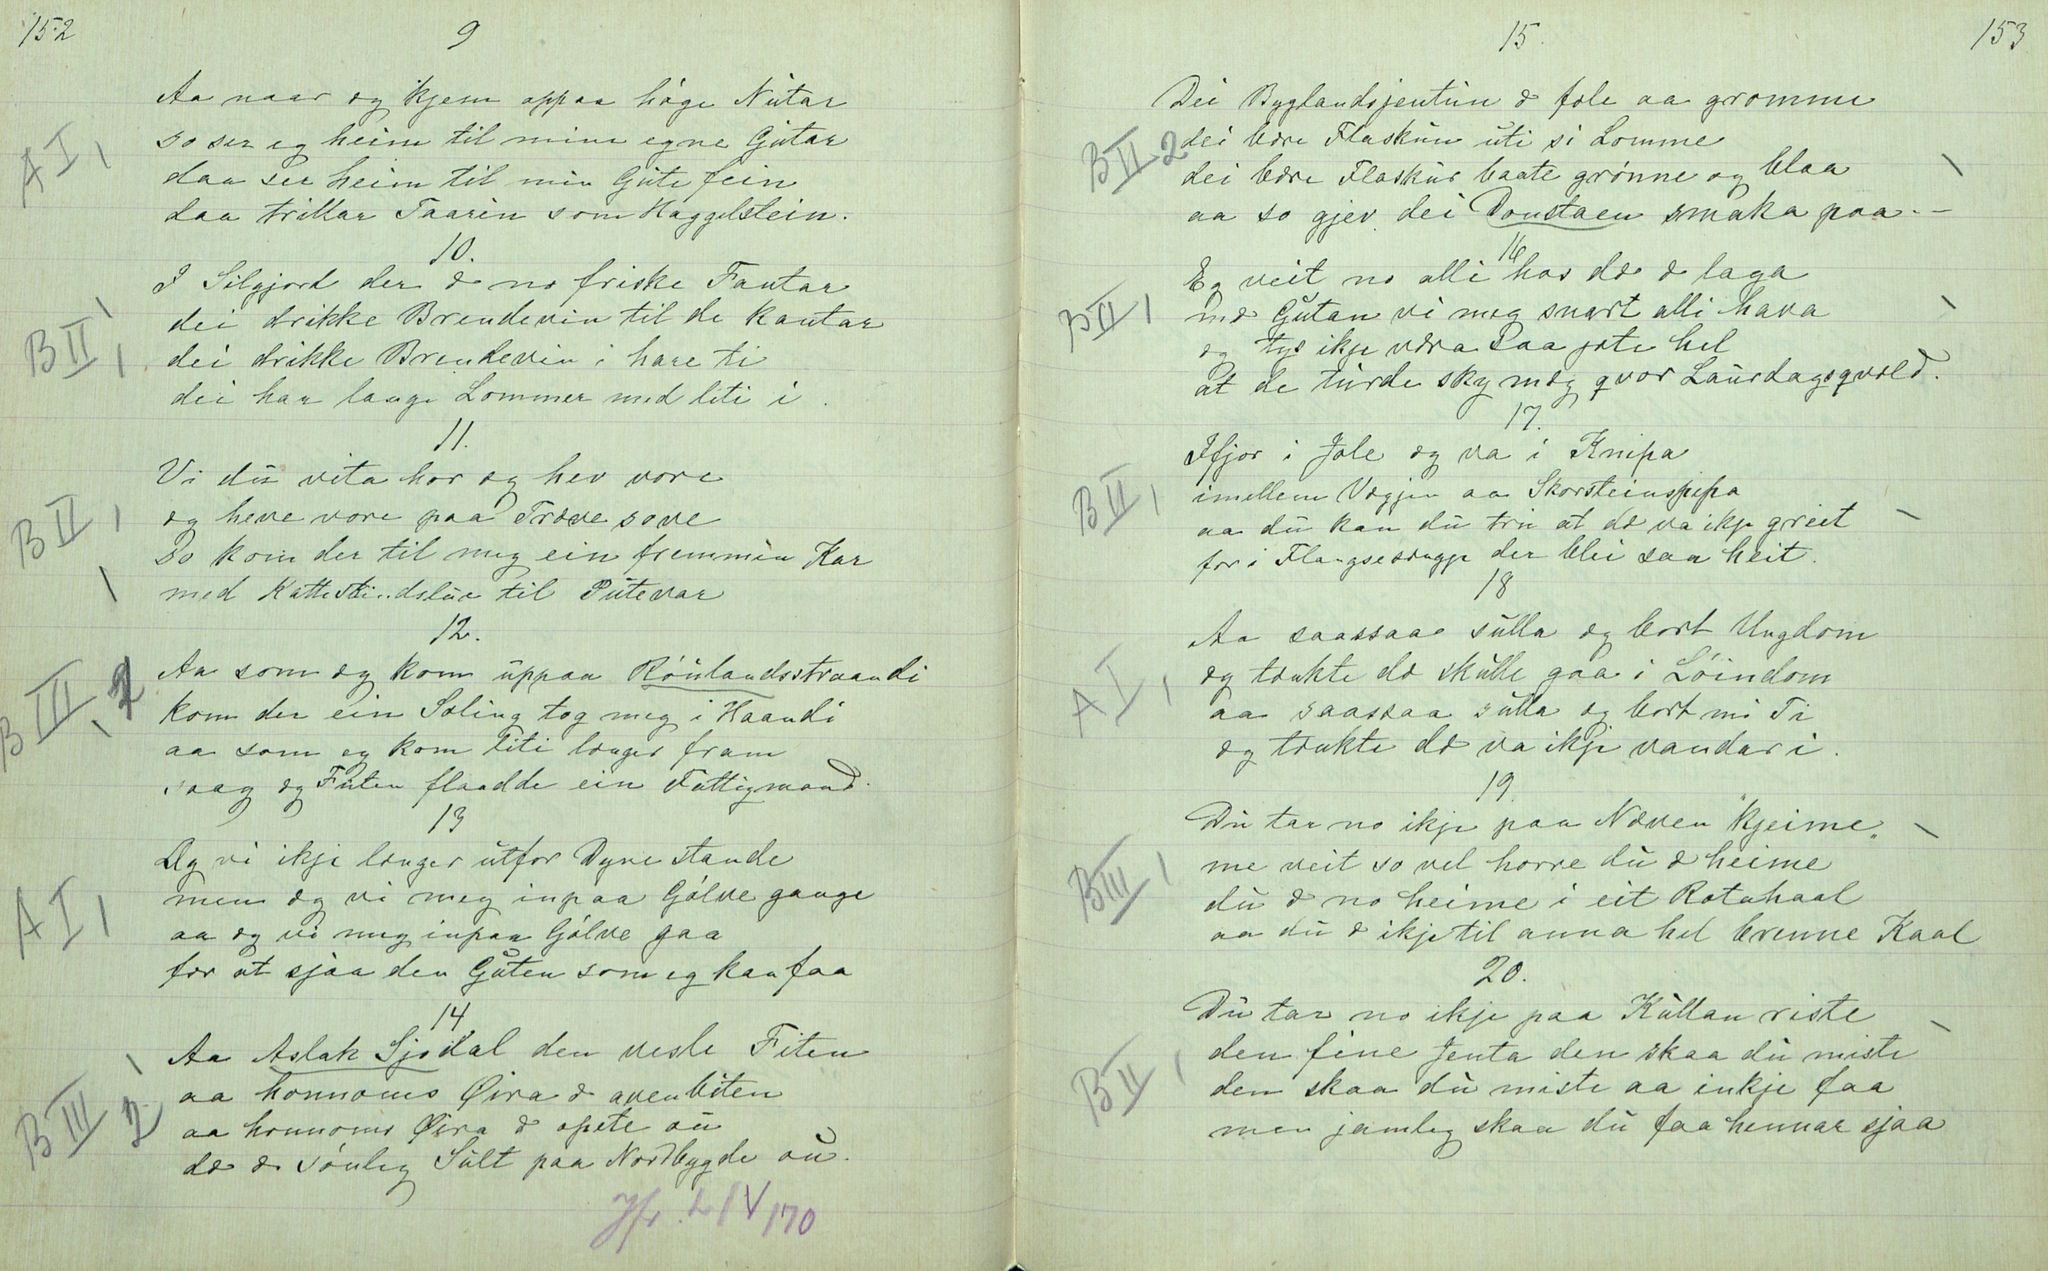 152
9
Aa naar eg kjem oppaa høge Nutar
so ser eg heim til mine egne Gutar
daa ser heim til min Gute fein
daa trillar Taarin som Haggelstein.
A I,
10.
I Siljord der æ no friske Fantar
dei drikke Brendevin til de kantar
dei drikke Brendevin i hare ti
dei har lange Lommer med liti i.
B II,
11.
Vi du vita hor eg hev vore
eg heve vore paa Træve sove
So kom der til meg ein fremmin Kar
med til Putevar
B II,
12.
Aa som eg kom uppaa Røulandsstraandi
kom der ein Sæling tog meg i Haandi
aa som eg kom liti længer fram
saag eg Futen flaadde ein Fattigmand.
B III, 2
13
Eg vi ikje længer utfor Dyne stande
men eg vi meg inpaa Gólve gange
aa eg vi meg inpaa Gólve gaa
for at sjaa den Guten som eg kan faa
A I,
14
Aa Aslak Sjodal den vesle Fiten
aa honnoms Øira æ avenbiten
aa honnoms Øira æ opete óu
de æ sónleg Sult paa Nordbygde óu.
B III 2
Jfr. L IV 170
153
15.
Dei Byglandsjentun æ fæle aa gromme
dei bære Flaskun uti si Lomme
dei bære Flaskur baate grønne og blaa
aa so gjev dei Donstaen smaka paa. –
B II 2
16
Eg veit no alli hos dæ æ laga
me Gutan vi meg snart alli hava
eg tys ikje væra Saa jote hel
at de turde sky meg qvor Laurdagsqvæld.
B II,
17.
Ifjor i Jole eg va i Knipa
imellem Veggjen aa Skorsteinspipa
aa du kan du tru at dæ va ikje greit
for i der blei saa heit.
B II,
18
Aa saassaa sulla eg bort Ungdom
eg tænkte dæ skulle gaa i Løindom
aa saassaa sulla eg bort mi Ti
eg tænkte dæ va ikje vandar i.
A I,
19.
Du tar no ikje paa Næven "kjeime"
me veit so vel horre du æ heime
du æ no heime i eit Rotahaal
aa du æ ikje til anna hel brenne Kaal
B III,
20.
Du tar no ikje paa Kullan riste
den fine Jenta den skaa du miste
den skaa du miste aa inkje faa
men jamleg skaa du faa hennar sjaa
B II,